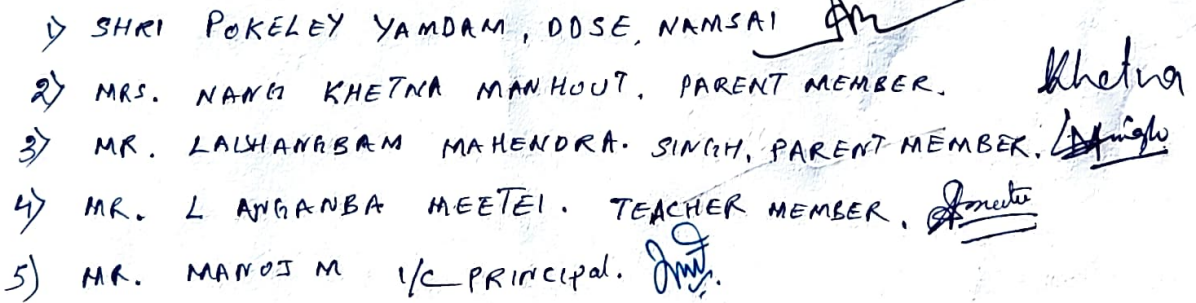 1) SHRI POKELEY YAMDAM, DOSE, NAMSAI
2) MRS. NANG KHETNA MANHOUT. PARENT MEMBER. Khetna
3) MR. LAISHANGBAM MAHENDRA. SINGH, PARENT MEMBER.
4) MR. L ANGANBA MEETEI. TEACHER MEMBER.
5) MR. MANOJ M I/C PRINCIPAL.